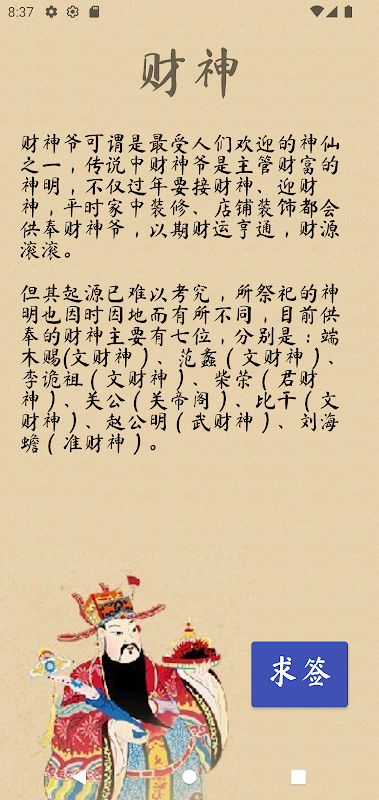 8:37
财神
财神爷可谓是最受人们欢迎的神仙
之一，传说中财神爷是主管财富的
神明，不仅过年要接财神、迎财
神，平时家中装修、店铺装饰都会
供奉财神爷，以期财运亨通，财源
滚滚。
但其起源已难以考究，所祭祀的神
明也因时因地而有所不同，目前供
奉的财神主要有七位，分别是：端
木赐(文财神）、范蠡（文财神）、
李诡祖（文财神）、柴荣（君财
神）、关公（关帝阁）、比干（文
财神）、赵公明（武财神）、刘海
蟾（准财神）。
求签